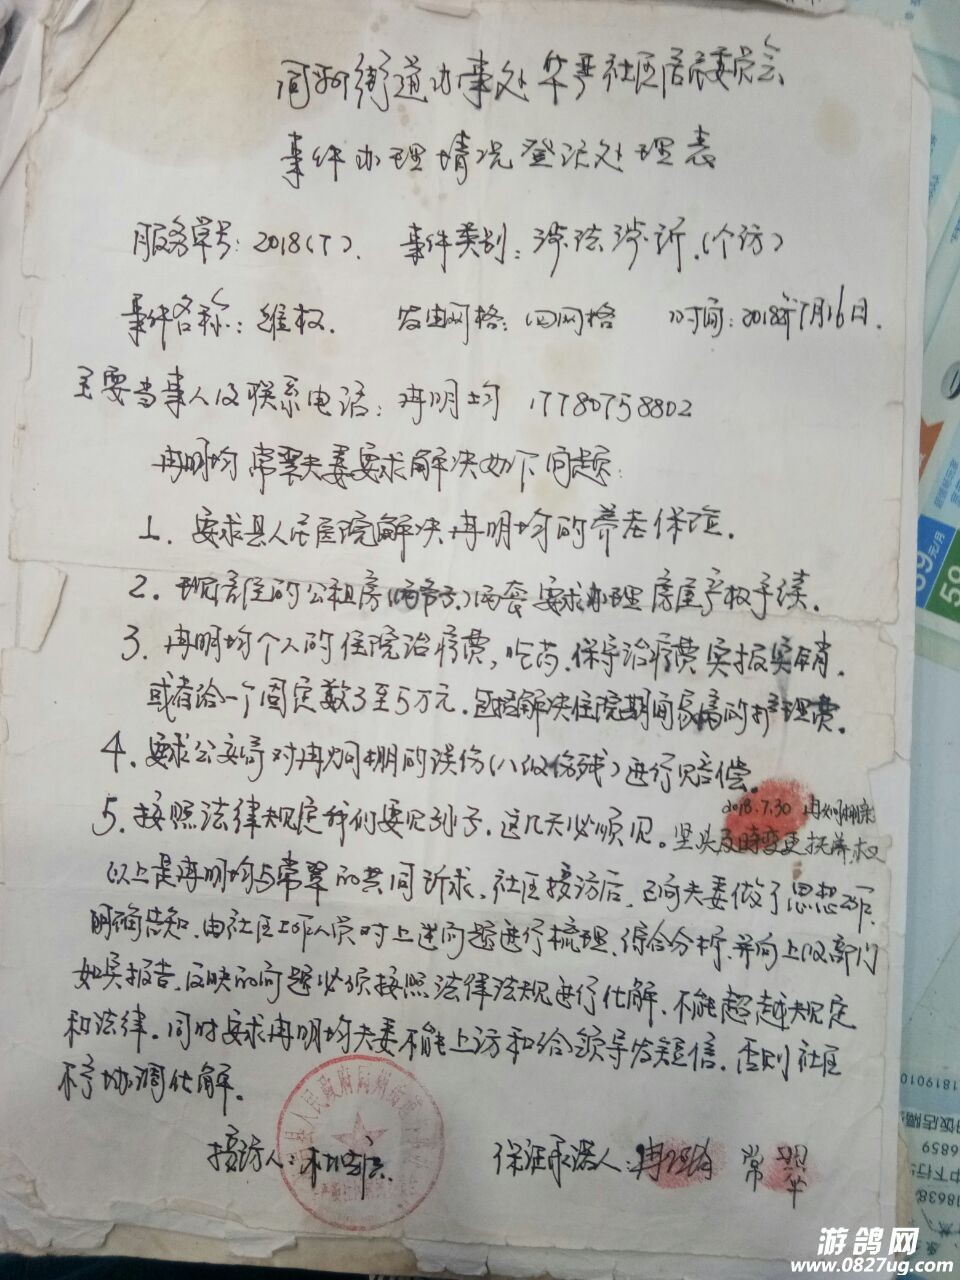 同州街道办事处华严社区居民委员会
事件办理情况登记处理表
服务单号：2018(7)． 事件类别：涉法涉诉．(个访)
事件名称：维权． 发由网格：四网格 时间：2018年7月16日．
主要当事人及联系电话：冉明均 17780758802
冉明均常翠夫妻要求解决如下问题：
1．要求县人民医院解决冉明均的养老保险．
2．现居住的公租房()两套要求办理房屋产权手续．
3．冉明均个人的住院治疗费，吃药．保守治疗费实报实销．
或者给一个固定数3至5万元．包括解决住院期间的护理费。
4．要求公安局对冉炯棚的误伤(八级伤残)进行赔偿．
2018.7.30
5．按照法律规定我们要见孙子．这几天必须见。及時变更抚养权
以上是冉明均与常翠的共同诉求．社区接访后，已向夫妻做了思想工作．
明确告知．由社区工作人员对上述问题进行梳理．综合分析．并向上级部门
如实报告．反映的问题必须按照法律法规进行化解．不能超越规定
和法律．同时要求冉明均夫妻不能上访和给领导发短信．否则社区
不予协调化解．
接访人： 保证承诺人：冉明均 常翠
游鸽网
www.0827ug.com
元/月
59
1819010
6859
18638